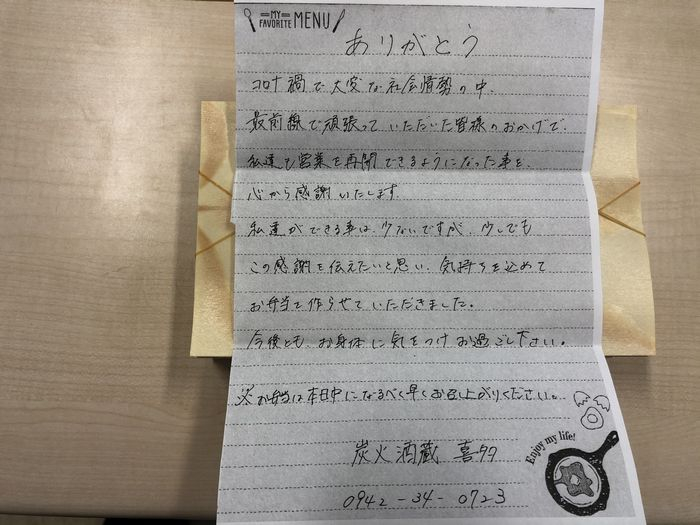 MY FAVORITE MENU
ありがとう
コロナ禍で大変な社会情勢の中、
最前線で頑張っていただいた皆様のおかげで、
私達も営業を再開できるようになった事を、
心から感謝いたします。
私達ができる事は、少ないですが、少しでも
この感謝を伝えたいと思い、気持ちを込めて
お弁当を作らせていただきました。
今後とも、お身体に気をつけお過ごし下さい。
※お弁当は本日中になるべく早くお召し上がりください。
Enjoy my life!
炭火酒蔵 喜夛
0942-34-0723